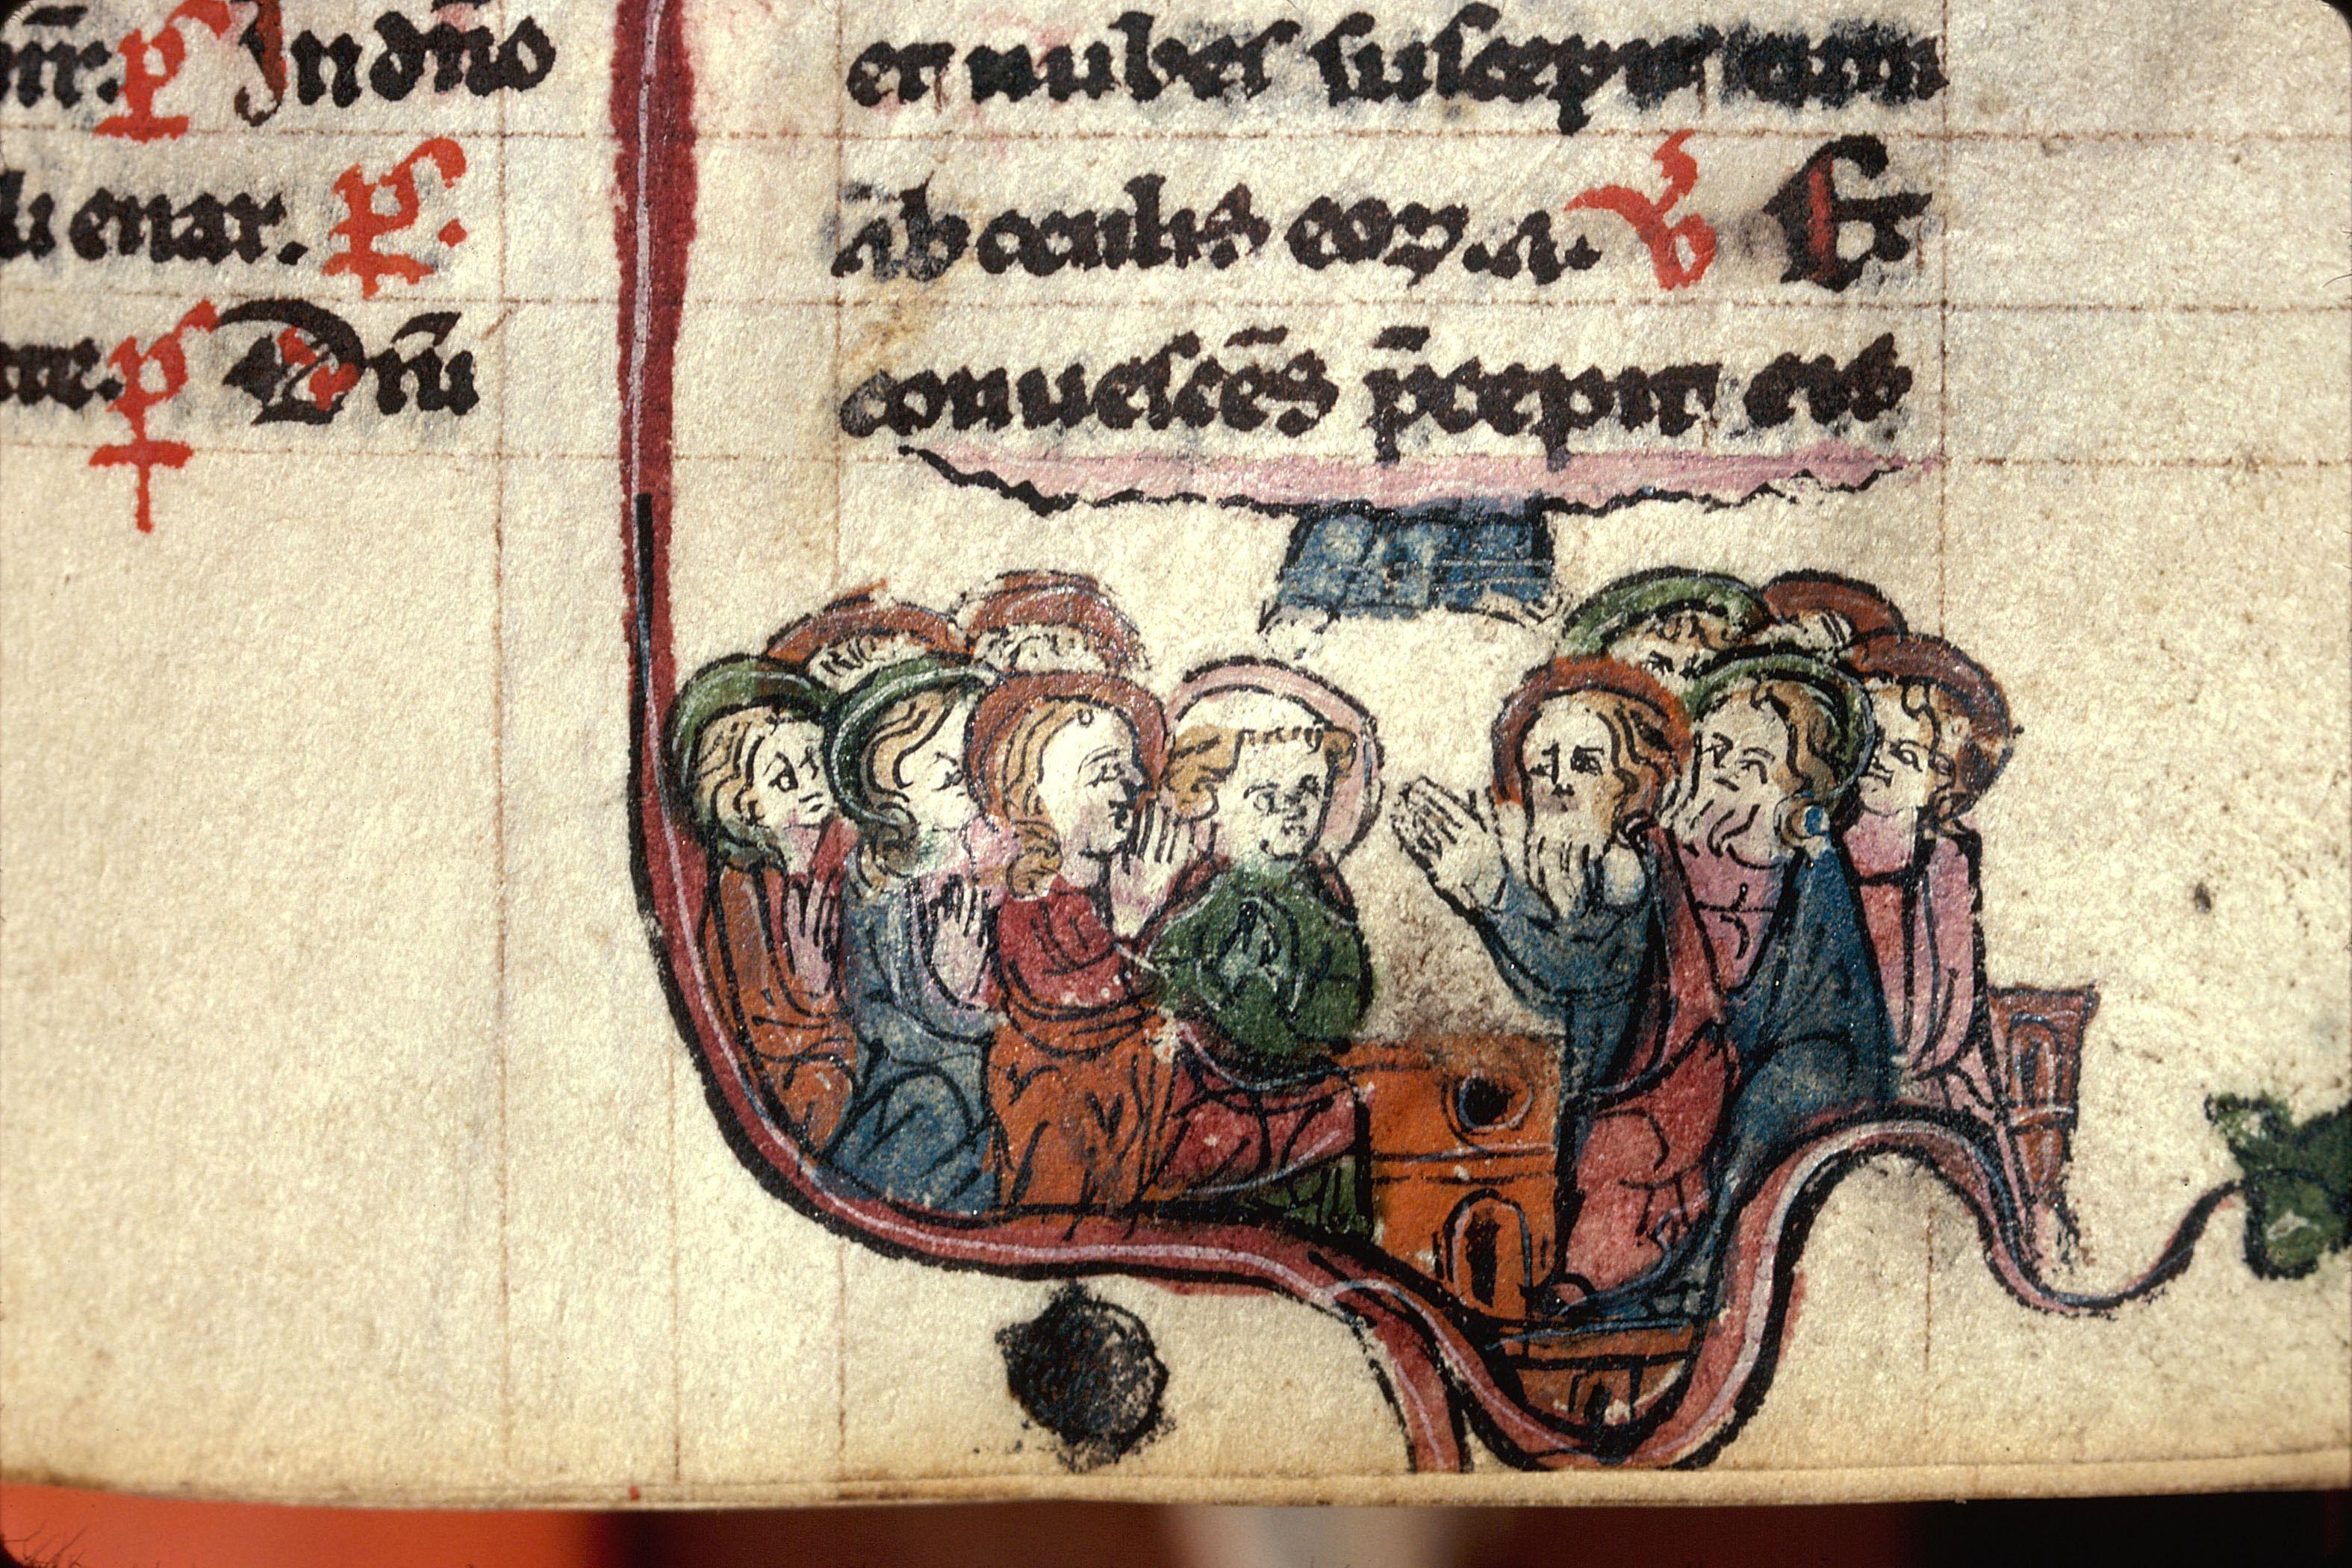 In dño
li enar.
Dñi
et nubes suscepit eum
ab oculis eoꝝ. a. ℣ Et
conuescēs p̄cepit eis